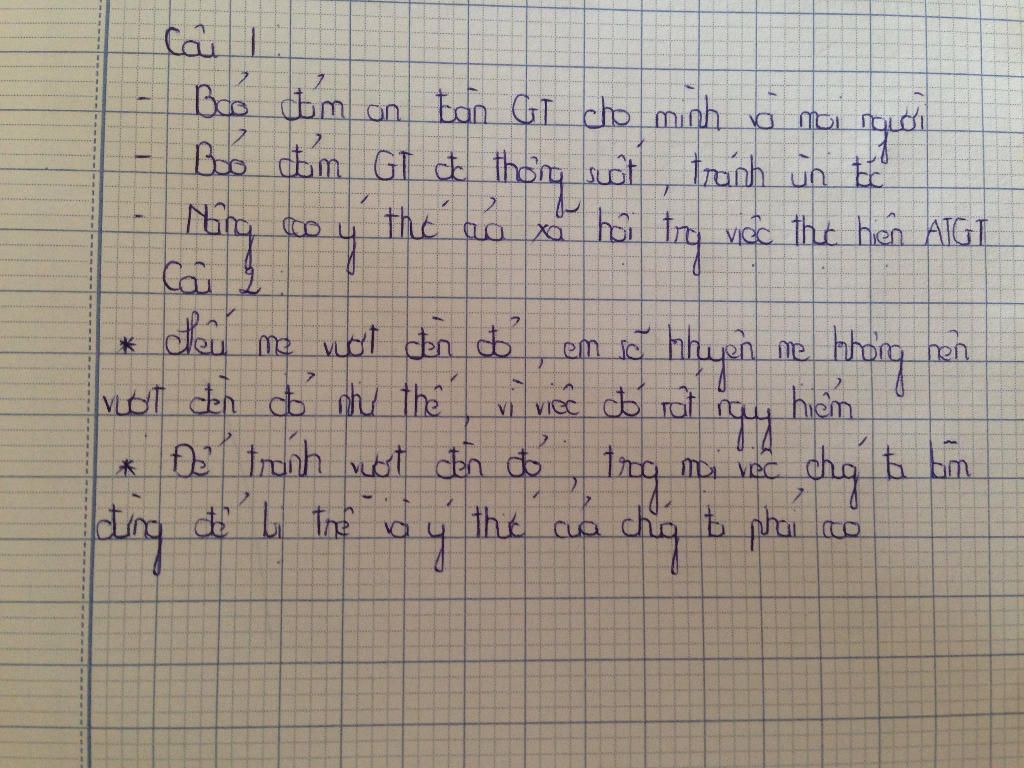 Câu 1.
- Bảo đảm an toàn GT cho mình và mọi người
- Bảo đảm GT đc thông suốt, tránh ùn tắc
- Nâng cao ý thức của xã hội trg việc thực hiện ATGT
Câu 2.
* Nếu mẹ vượt đèn đỏ, em sẽ khuyên mẹ không nên
vượt đèn đỏ như thế, vì việc đó rất nguy hiểm
* Để tránh vượt đèn đỏ, trog mọi việc chg ta
đừng để trễ và ý thức của chg ta phải cao